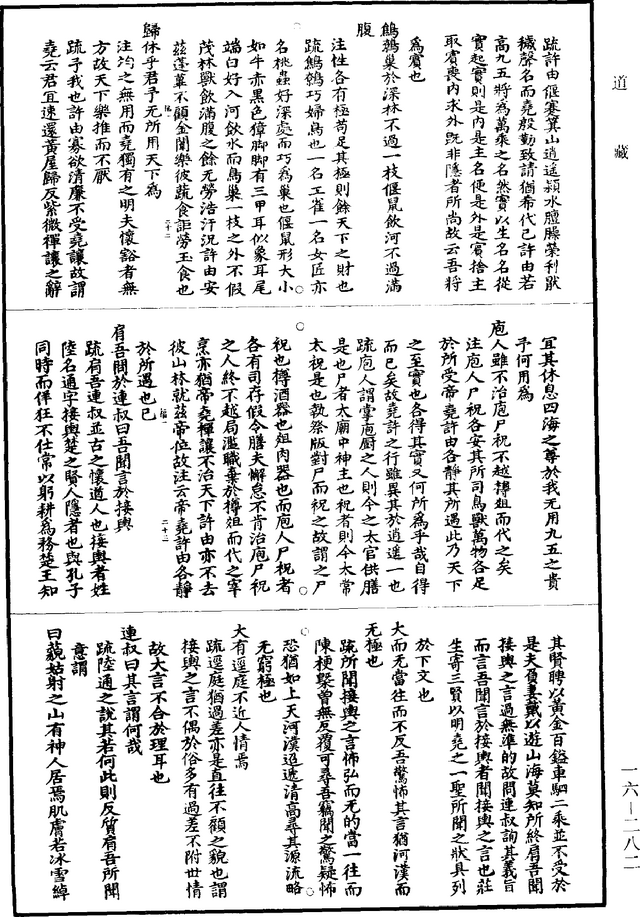 道藏
疏許由偃蹇箕山逍遙潁水膻臊榮利猒
穢聲名而堯殷勤致請猶希代己許由若
高九五將為萬乘之名然實以生名名從
實起實則是內是主名便是外是賓捨主
取賓喪內求外旣非隱者所尚故云吾將
為賓也
鷦鷯巢於深林不過一枝偃鼠飲河不過滿
腹
注性各有極苟足其極則餘天下之財也
疏鷦鷯巧婦鳥也一名工雀一名女匠亦
名桃蟲好深處而巧為巢也偃鼠形大小
如牛赤黑色獐脚脚有三甲耳似象耳尾
端白好入河飲水而鳥巢一枝之外不假
茂林獸飲滿腹之餘無勞浩汗況許由安
茲蓬蓽不顧金闈樂彼蔬食詎勞玉食也
歸休乎君予无所用天下為
注均之無用而堯獨有之明夫懷豁者無
方故天下樂推而不厭
疏予我也許由寡欲清廉不受堯讓故謂
堯云君宜速還黃屋歸反紫微禪讓之辭
宜其休息四海之尊於我无用九五之貴
予何用為
庖人雖不治庖尸祝不越樽俎而代之矣
注庖人尸祝各安其所司鳥獸萬物各足
於所受帝堯許由各靜其所遇此乃天下
之至實也各得其實又何所為乎哉自得
而已矣故堯許之行雖異其於逍遙一也
疏庖人謂掌庖廚之人則今之太官供膳
是也尸者太廟中神主也祝者則今太常
太祝是也執祭版對尸而祝之故謂之尸
祝也樽酒器也俎肉器也而庖人尸祝者
各有司存假令膳夫懈怠不肯治庖尸祝
之人終不越局濫職棄於樽俎而代之宰
烹亦猶帝堯禪讓不治天下許由亦不去
彼山林就茲帝位故注云帝堯許由各靜
於所遇也已
肩吾問於連叔曰吾聞言於接輿
疏肩吾連叔並古之懷道人也接輿者姓
陸名通字接輿楚之賢人隱者也與孔子
同時而佯狂不仕常以躬耕為務楚王知
其賢聘以黃金百鎰車駟二乘並不受於
是夫負妻戴以遊山海莫知所終肩吾聞
接輿之言過無準的故問連叔詢其義旨
而言吾聞言於接輿者聞接輿之言也莊
生寄三賢以明堯之一聖所聞之狀具列
於下文也
大而无當往而不反吾驚怖其言猶河漢而
无極也
疏所聞接輿之言怖弘而无的當一往而
陳梗槩曾無反覆可尋吾竊聞之驚疑怖
恐猶如上天河漢迢遞清高尋其源流略
无窮極也
大有逕庭不近人情焉
疏逕庭猶過差亦是直往不顧之貌也謂
接輿之言不偶於俗多有過差不附世情
故大言不合於理耳也
連叔曰其言謂何哉
疏陸通之說其若何此則反質肩吾所聞
意謂
曰藐姑射之山有神人居焉肌膚若冰雪綽
一六—二八二